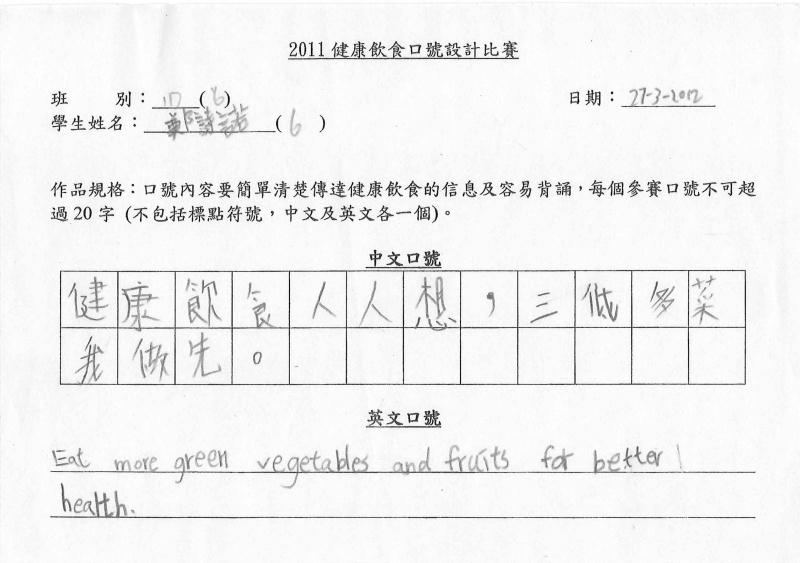 2011 健康飲食口號設計比賽
班 別：1D(6) 日期：27-3-2012
學生姓名：鄭詩諾(6 )
作品規格：口號內容要簡單清楚傳達健康飲食的信息及容易背誦，每個參賽口號不可超
過 20 字 (不包括標點符號，中文及英文各一個)。
中文口號
健康飲食人人想，三低多菜
我做先。
英文口號
Eat more green vegetables and fruits for better
health.